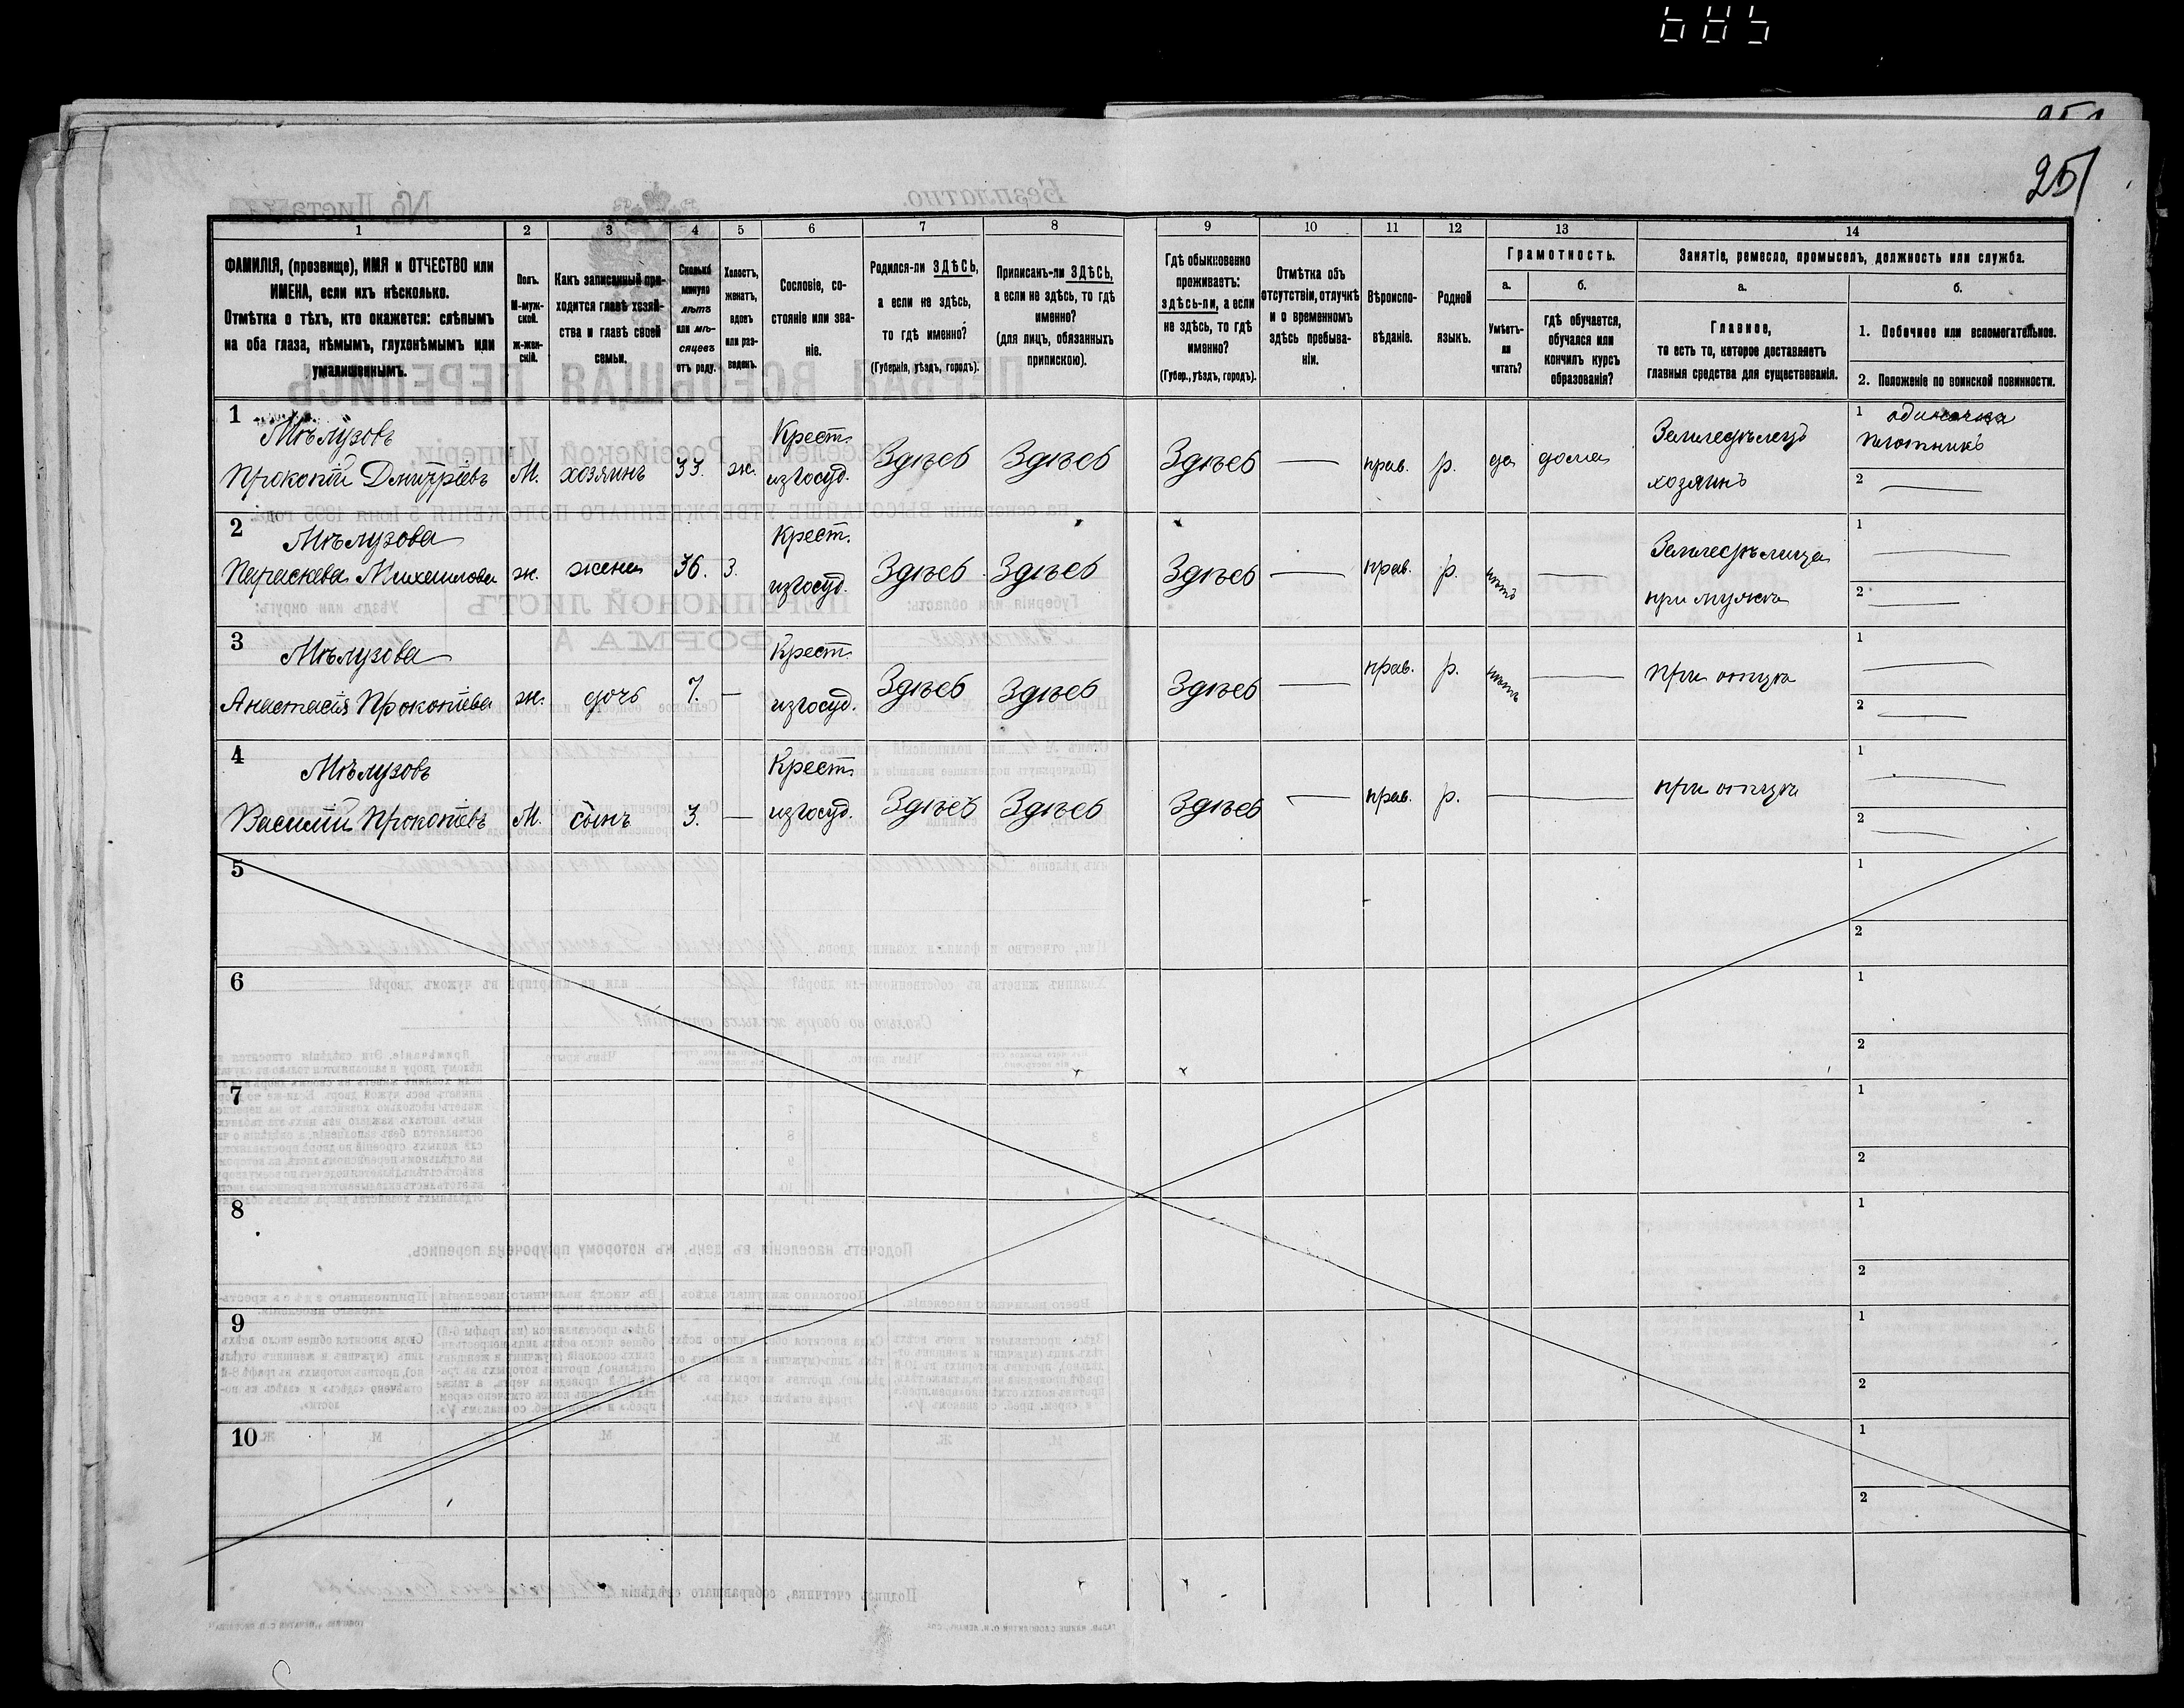 685
251
1 2 3 4 5 6 7 8 9 10 11 12 13 14
ФАМИЛІЯ, (прозвище), ИМЯ и ОТЧЕСТВО или
ИМЕНА, если ихъ нѣсколько.
Отмѣтка о тѣхъ, кто окажется: слѣпымъ
на оба глаза, нѣмымъ, глухонѣмымъ или
умалишеннымъ.
Полъ.
М-муж-
ской.
ж-жен-
скій.
Какъ записанный при-
ходится главѣ хозяй-
ства и главѣ своей
семьи.
Сколько
минуло
лѣтъ
или мѣ-
сяцевъ
отъ роду.
Холостъ,
женатъ,
вдовъ
или раз-
веденъ.
Сословіе, со-
стояніе или зва-
ніе.
Родился-ли ЗДѢСЬ,
а если не здѣсь,
то гдѣ именно?
(Губернія, уѣздъ, городъ).
Приписанъ-ли ЗДѢСЬ,
а если не здѣсь, то гдѣ
именно?
(для лицъ, обязанныхъ
припискою).
Гдѣ обыкновенно
проживаетъ:
здѣсь-ли, а если
не здѣсь, то гдѣ
именно?
(Губер., уѣздъ, городъ).
Отмѣтка объ
отсутствіи, отлучкѣ
и о временномъ
здѣсь пребыва-
ніи.
Вѣроиспо-
вѣданіе.
Родной
языкъ.
Грамотность.
а.
Умѣетъ-
ли
читать?
б.
гдѣ обучается,
обучался или
кончилъ курсъ
образованія?
Занятіе, ремесло, промыселъ, должность или служба.
а.
Главное,
то есть то, которое доставляетъ
главныя средства для существованія.
б.
1. Побочное или вспомогательное.
2. Положеніе по воинской повинности.
1 Мѣлузовъ
Прокопій Дмитріевъ М. хозяинъ 33. ж. Крест. изъ госуд. Здѣсь Здѣсь Здѣсь — прав. р. да дома
Земледѣлецъ
хозяинъ
1 одиночка
плотникъ
2 —
2 Мѣлузова
Параскева Михаилова ж. жена 36. З. Крест. изъ госуд. Здѣсь Здѣсь Здѣсь — прав. р. нѣтъ —
Земледѣлица
при мужѣ
1 —
2 —
3 Мѣлузова
Анастасія Прокопіева ж. дочь 7. — Крест. изъ госуд. Здѣсь Здѣсь Здѣсь — прав. р. нѣтъ — при отцѣ
1 —
2 —
4 Мѣлузовъ
Василій Прокопіевъ М. сынъ 3. — Крест. изъ госуд. Здѣсь Здѣсь Здѣсь — прав. р. — при отцѣ
1 —
2 —
5
1
2
6
1
2
7
1
2
8
1
2
9
1
2
10
1
2